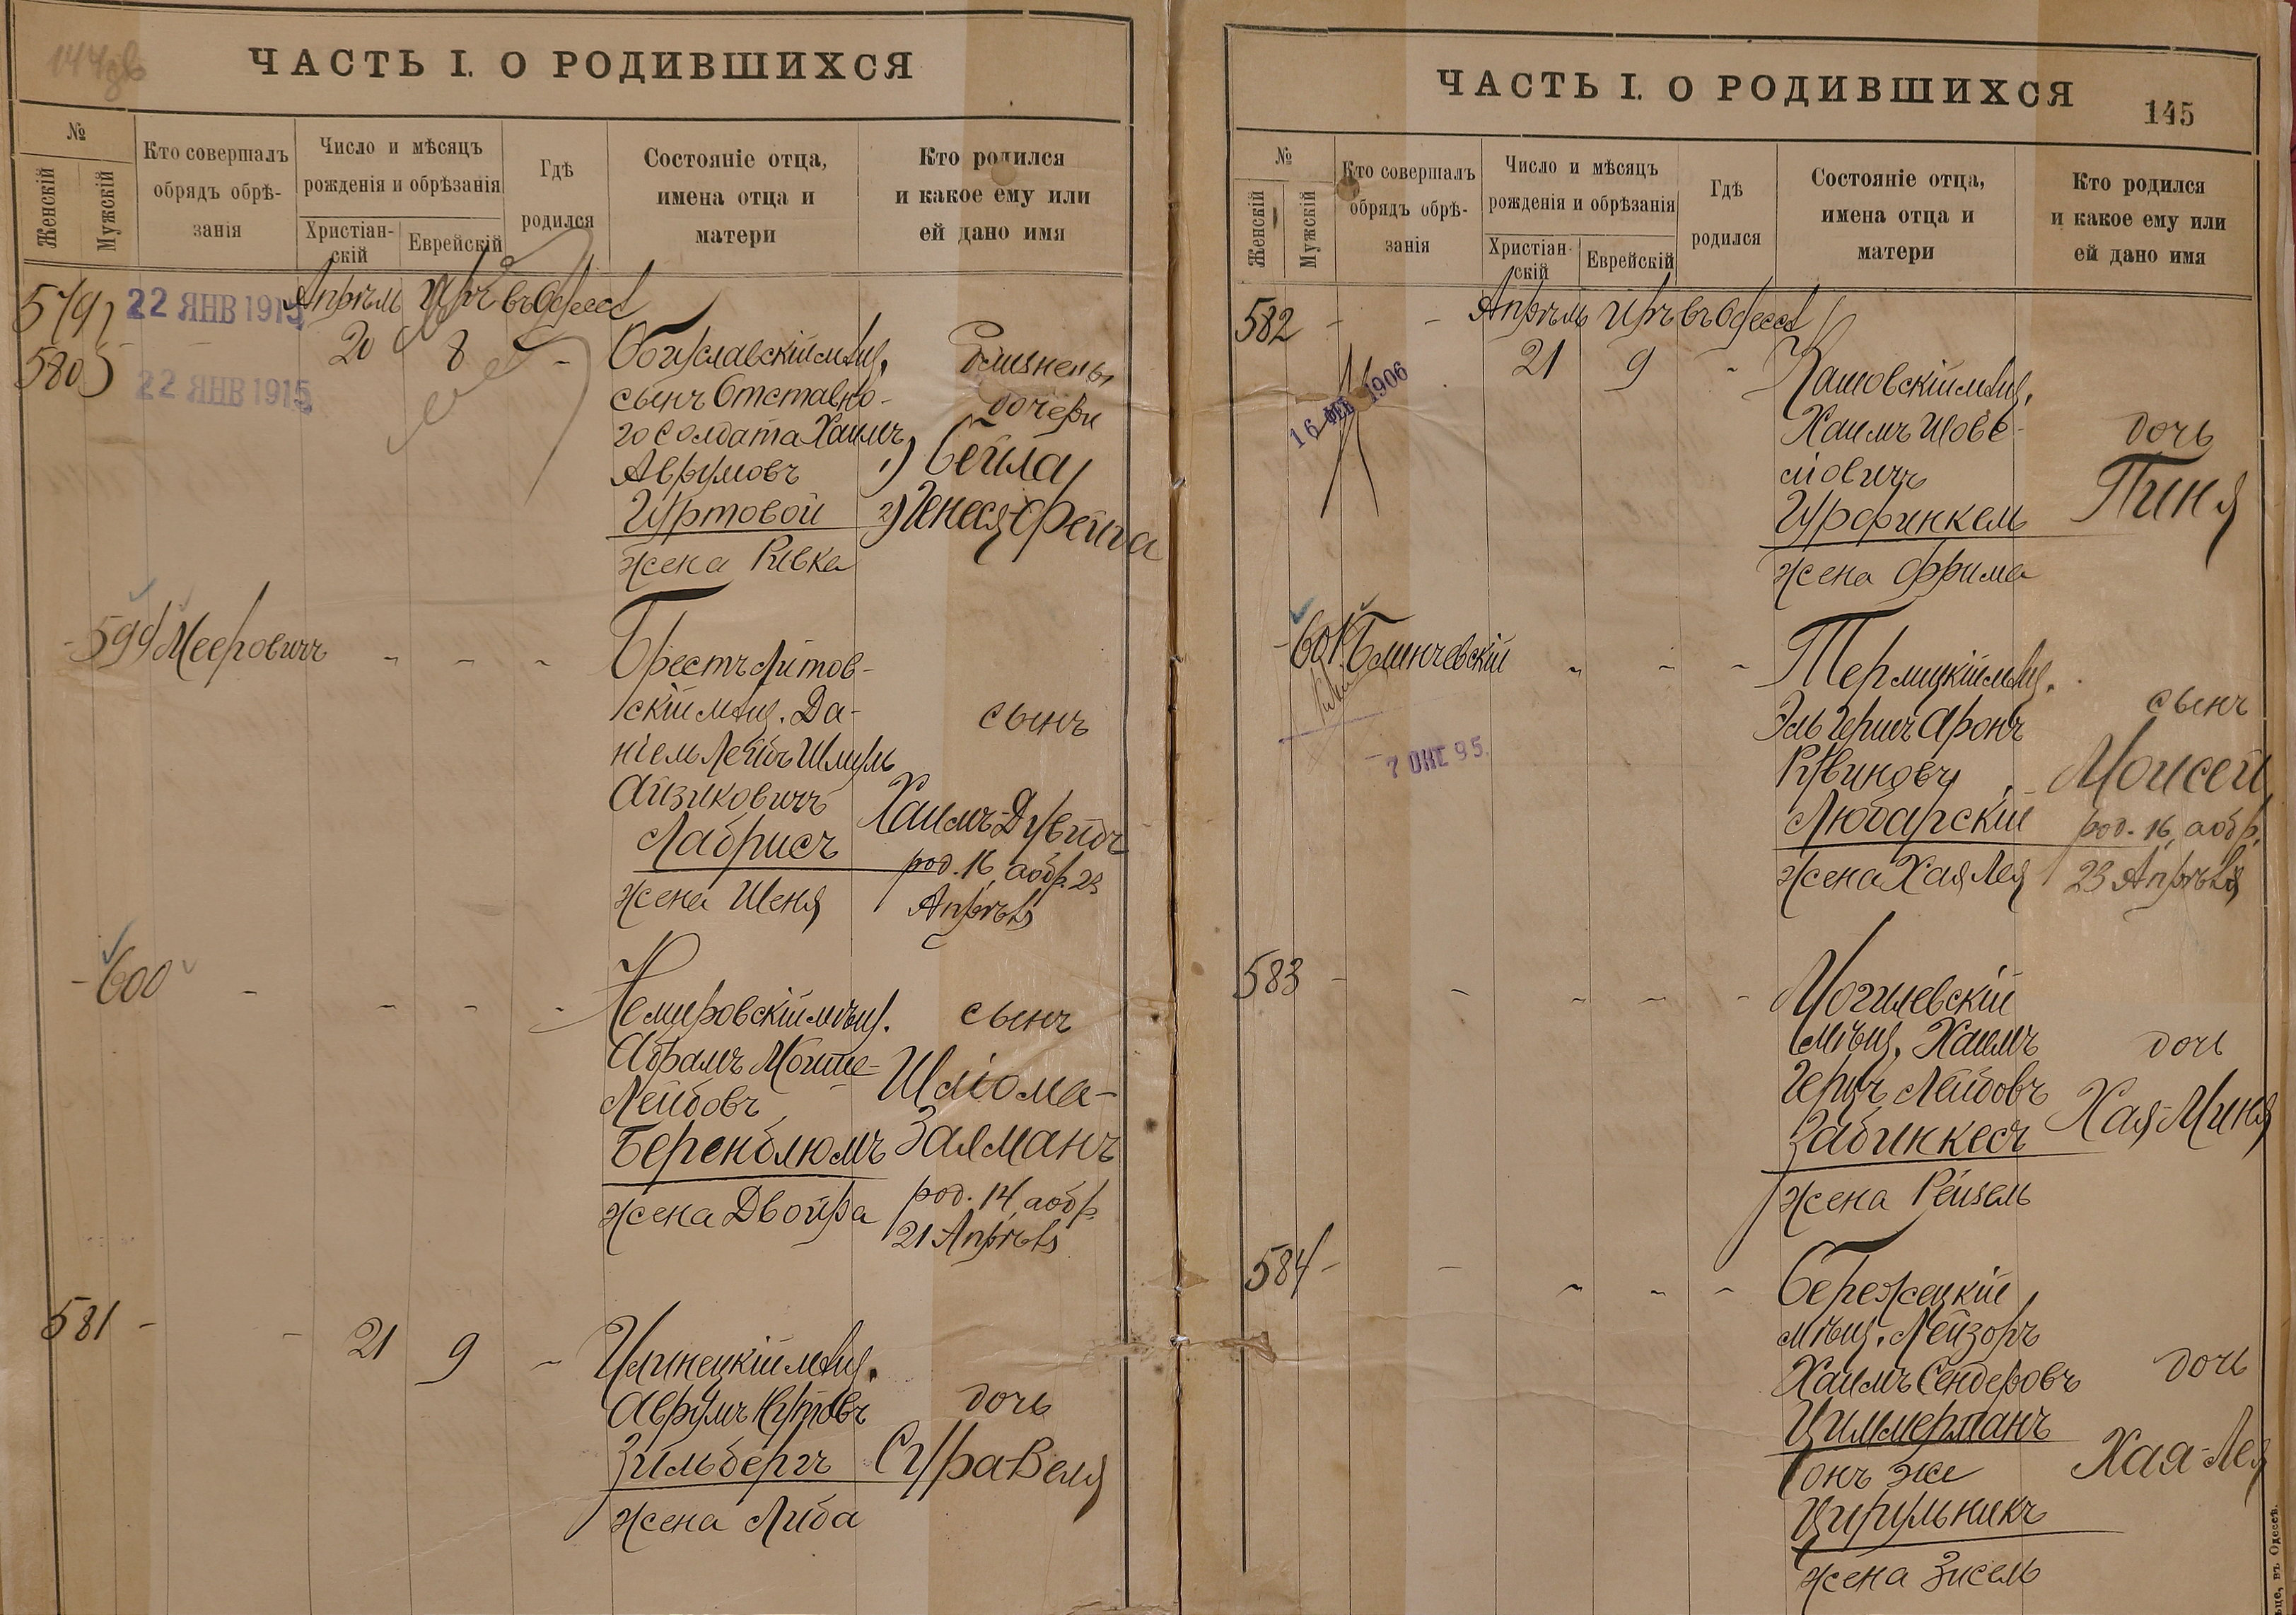 144об
ЧАСТЬ I. О РОДИВШИХСЯ
№
Женскій
Мужскій
Кто совершалъ
обрядъ обрѣ-
занія
Число и мѣсяцъ
рожденія и обрѣзанія
Христіан-
скій
Еврейскій
Гдѣ
родился
Состояніе отца,
имена отца и
матери
Кто родился
и какое ему или
ей дано имя
579
22 ЯНВ 1915
Апрѣль Иръ въ Одессѣ
580
22 ЯНВ 1915
20 8 -
Богуславскій мѣщ.
сынъ Отставно-
го Солдата Хаимъ
Аврумовъ
Гуртовой
жена Ривка
близнецы
дочери
1) Бейла
2) Генеся-Фейга
599 Мееровичъ
Брестъ Литов-
скій мѣщ. Да-
ніель Лейбъ Шмуль
Айзиковичъ
Лабрисъ
жена Шеня
сынъ
Хаимъ-Дувидъ
род. 16, а обр. 23
Апрѣля
600
Немировскій мѣщ.
Абрамъ Мошие-
Лейбовъ
Беренблюмъ
жена Двойра
сынъ
Шлiома-
Залманъ
род. 14, а обр.
21 Апрѣля
581 - - 21 9 -
Илинецкій мѣщ.
Аврумъ
Зильбергъ
жена Либа
дочь
Сура Веля
ЧАСТЬ I. О РОДИВШИХСЯ
145
№
Женскій
Мужскій
Кто совершалъ
обрядъ обрѣ-
занія
Число и мѣсяцъ
рожденія и обрѣзанія
Христіан-
скій
Еврейскій
Гдѣ
родился
Состояніе отца,
имена отца и
матери
Кто родился
и какое ему или
ей дано имя
582 - -
Апрѣль Иръ въ Одессѣ
21 9 -
16 1906
Рашовскій мѣщ.
Хаимъ Иове-
ліовичъ
Гурфинкель
жена Фрима
дочь
Пиня
601 Блинчевскій
7 ОКТ 95.
Терлицкій мѣщ.
Эль Гершъ Аронъ
Рувиновъ
Любарскій
жена Хая Лея
сынъ
Моисей
род. 16, а обр.
23 Апрѣля
583
Могилевскій
мѣщ. Хаимъ
Герцъ Лейбовъ
Забинкесъ
жена Рейзель
дочь
Хая-Миня
584 -
Бережецкій
мѣщ. Лейзоръ
Хаимъ Сендеровъ
Циммерманъ
онъ же
Цирульникъ
жена Зисель
дочь
Хая-Лея
въ Одессѣ.